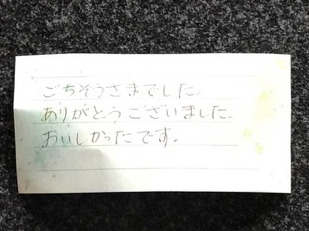 ごちそうさまでした。
ありがとうございました。
おいしかったです。